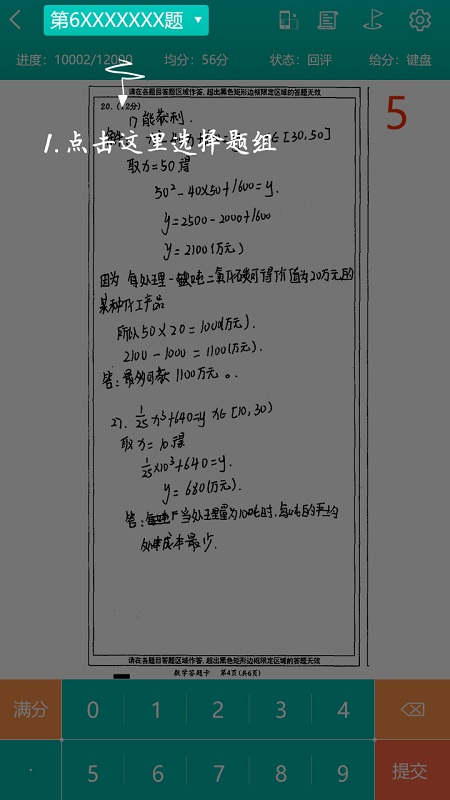 第6XXXXXXX题
进度：10002/12000 均分：56分 状态：回评 给分：键盘
请在各题目答题区域作答，超出黑色矩形边框限定区域的答题无效
5
20.（12分）
能获利.
∈[30,50]
1.点击这里选择题组
取x=50得
50²-40×50+1600=y.
y=2500-2000+1600
y=2100(万元)
因为 每处理一吨二氧化碳可得价值为20万元的
某种化工产品
所以50×20=1000(万元).
2100-1000=1100(万元).
答：最多可获1100万元。
1/25 x³+640=y x∈[10,30)
取x=10得
1/25×10³+640=y.
y=680(万元).
答： 当处理量为10吨时，每吨的平均
处理成本最少.
请在各题目答题区域作答，超出黑色矩形边框限定区域的答题无效
数学答题卡 第4页(共6页)
满分 0 1 2 3 4
· 5 6 7 8 9 提交